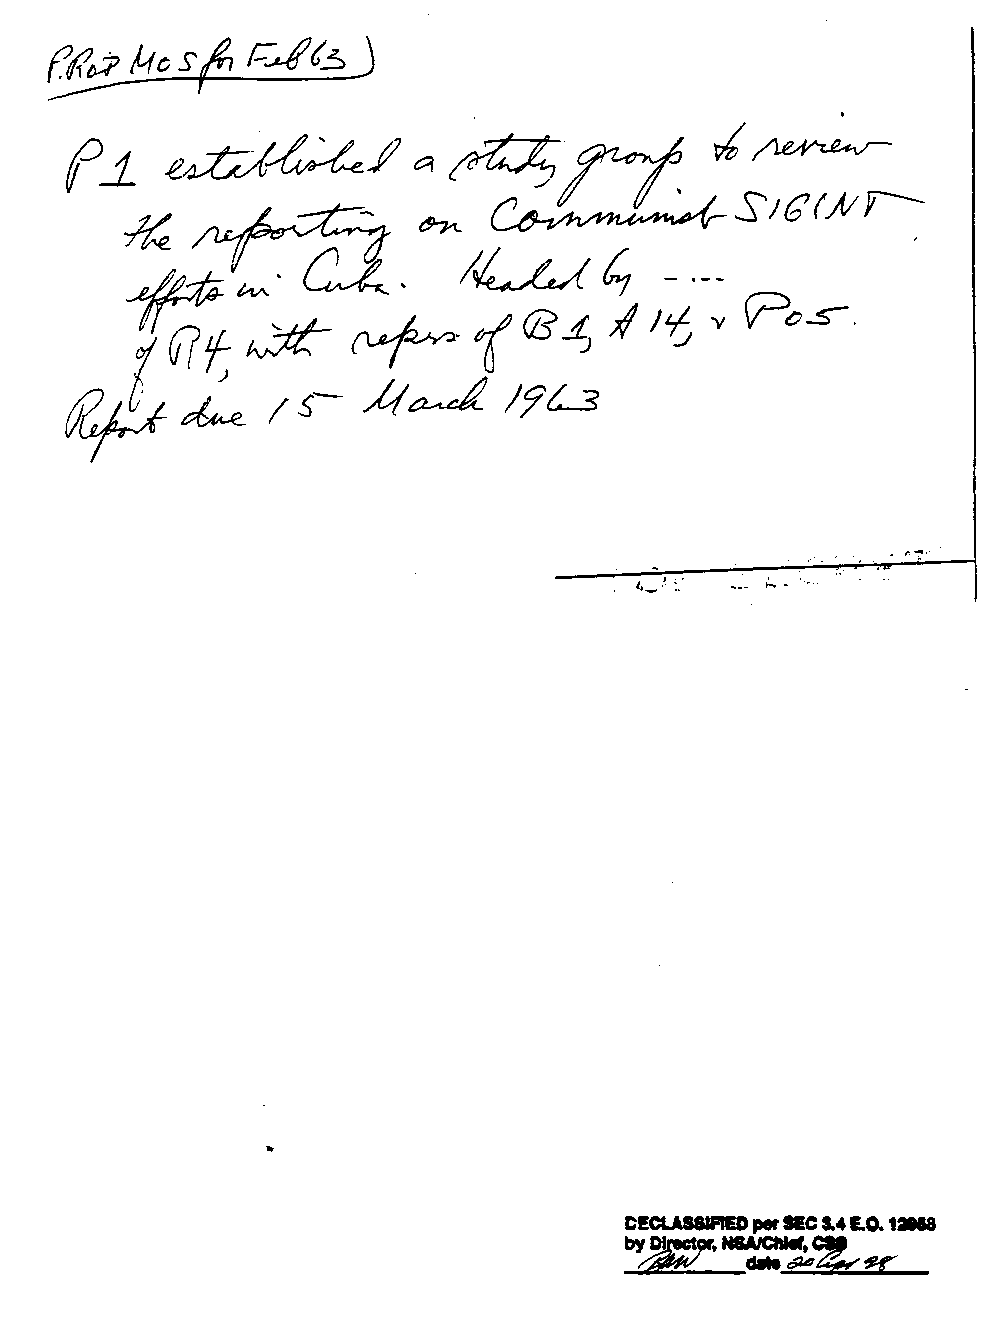 P. Rot MOS for Feb 63)
P1 established a study group to review
the reporting on Communist SIGINT
efforts in Cuba. Headed by -....
of R4, with repers of B1, A14, & P05.
Report due 15 March 1963
DECLASSIFIED per SEC 3.4 E.O. 12958
by Director, NSA/Chief, CSS
date 20 Apr 98